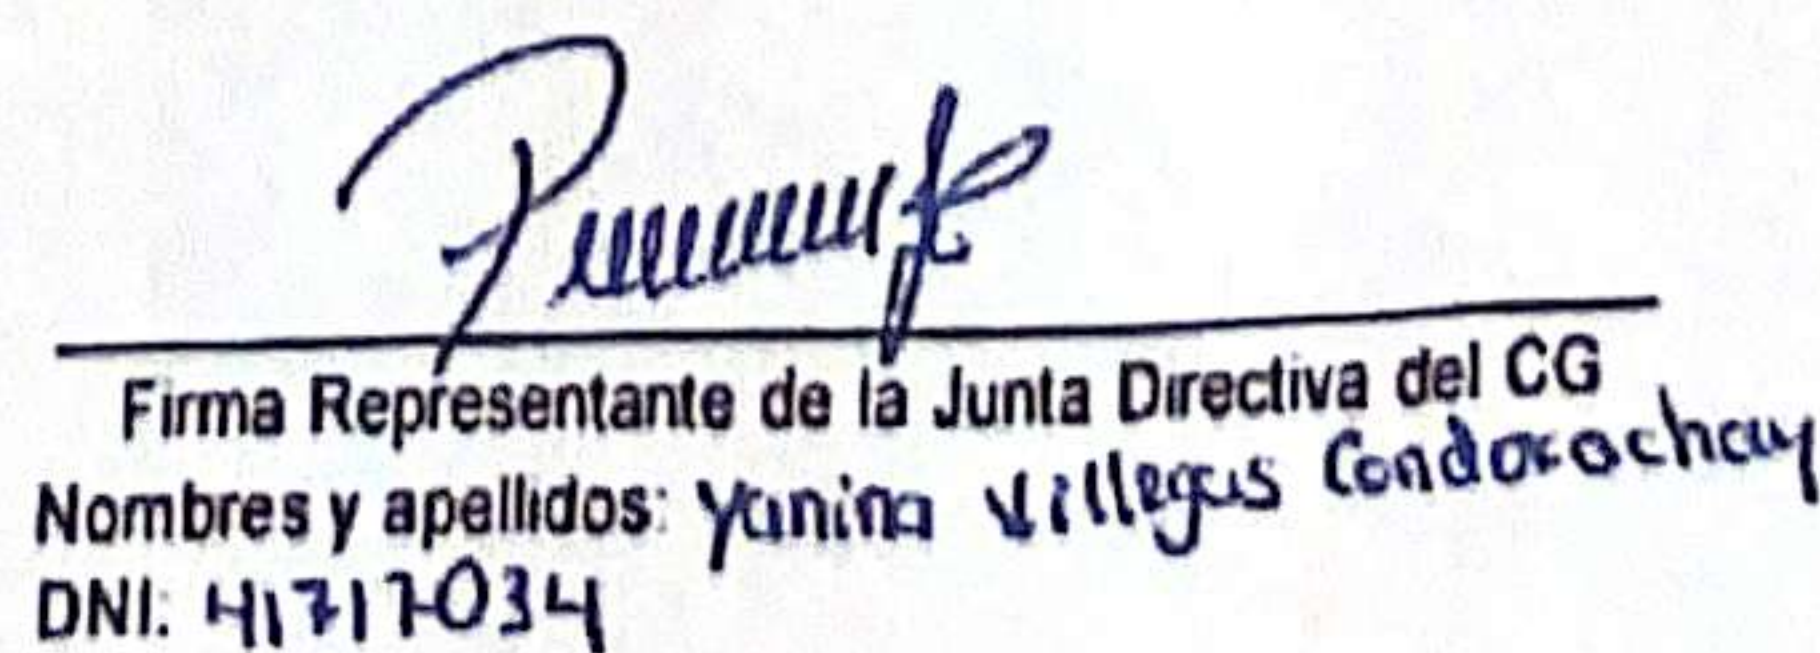 Firma Representante de la Junta Directiva del CG
Nombres y apellidos: Yanina Villegas Condorachay
DNI: 41717034